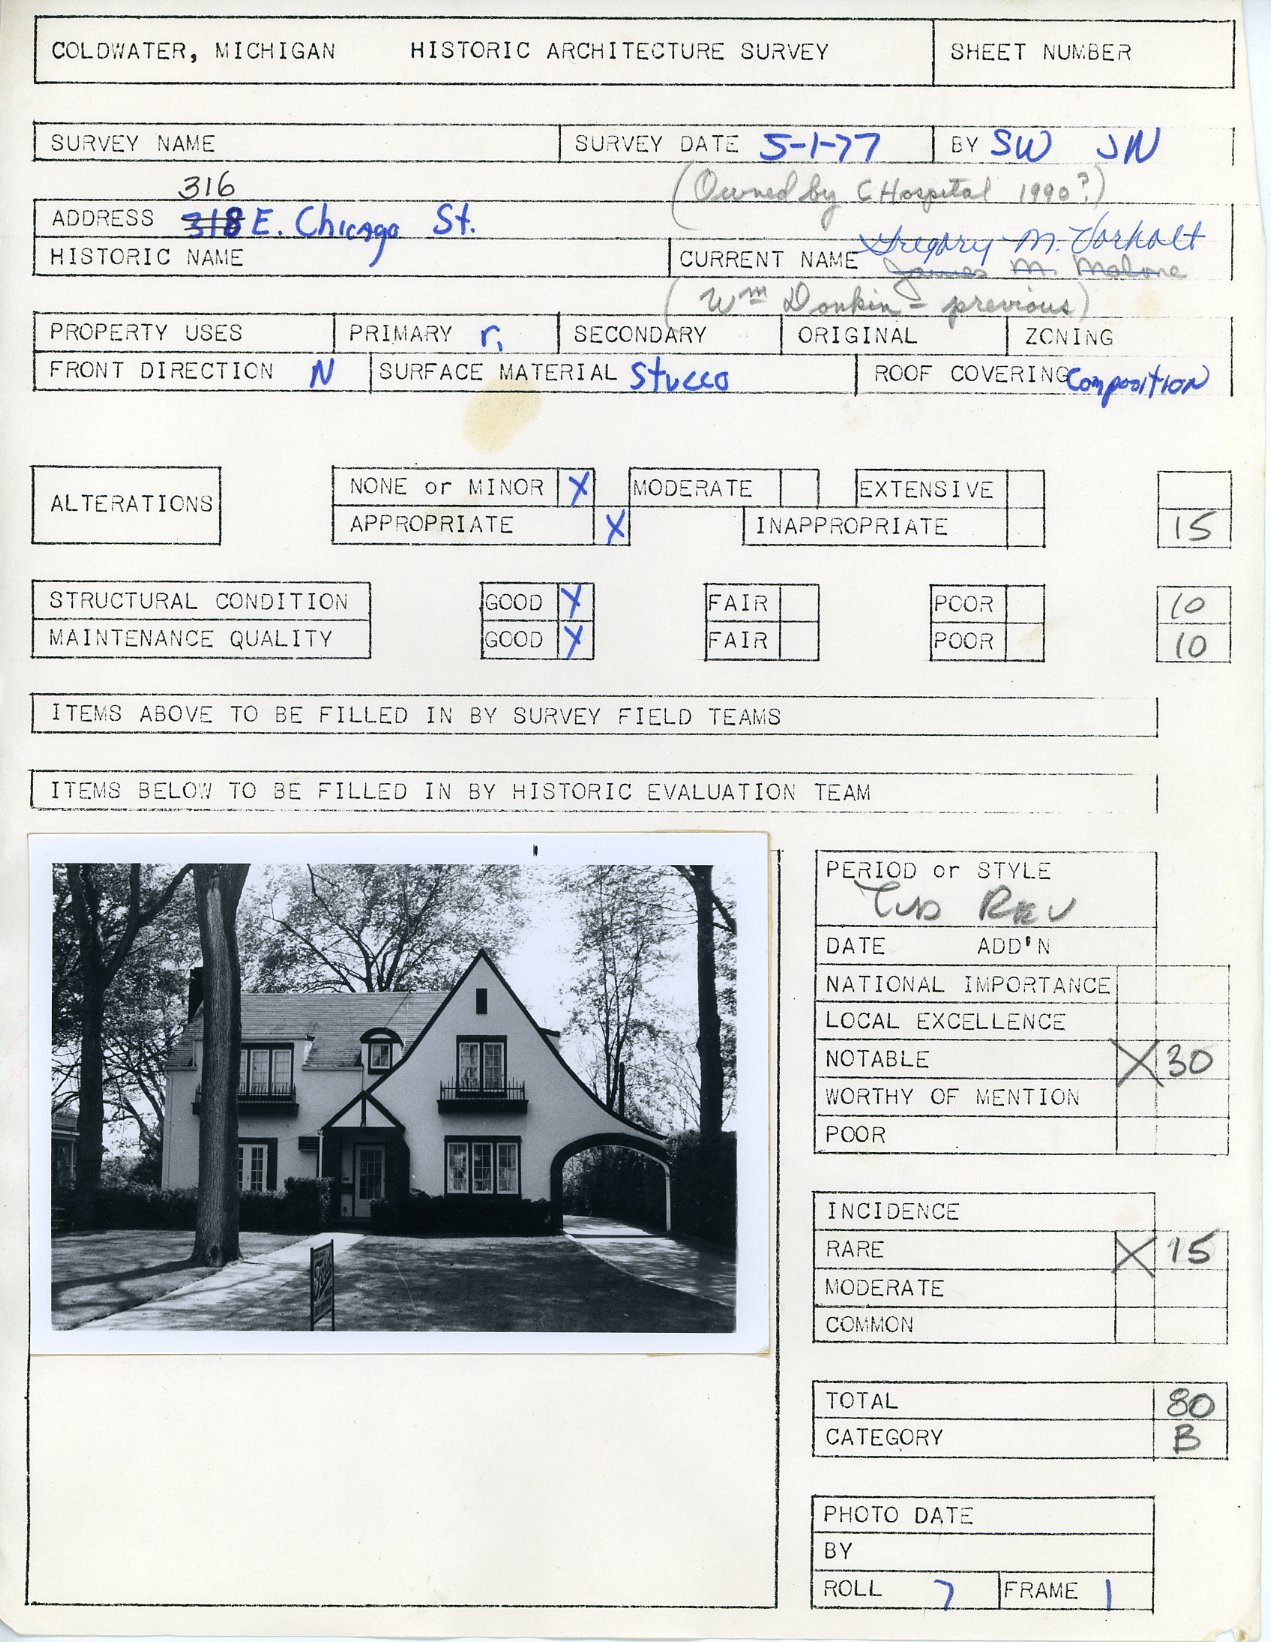 COLDWATER, MICHIGAN HISTORIC ARCHITECTURE SURVEY SHEET NUMBER
SURVEY NAME SURVEY DATE 5-1-77 BY SW JN
316 (Owned by C Hospital 1990?)
ADDRESS 318 E. Chicago St.
Gregory M. Vorholt
HISTORIC NAME CURRENT NAME James M. Malone
(Wm Donkin - previous)
PROPERTY USES PRIMARY r. SECONDARY ORIGINAL ZONING
FRONT DIRECTION N SURFACE MATERIAL Stucco ROOF COVERING Composition
ALTERATIONS NONE or MINOR X MODERATE EXTENSIVE
APPROPRIATE X INAPPROPRIATE 15
STRUCTURAL CONDITION GOOD X FAIR POOR 10
MAINTENANCE QUALITY GOOD X FAIR POOR 10
ITEMS ABOVE TO BE FILLED IN BY SURVEY FIELD TEAMS
ITEMS BELOW TO BE FILLED IN BY HISTORIC EVALUATION TEAM
PERIOD or STYLE
TUD REV
DATE ADD'N
NATIONAL IMPORTANCE
LOCAL EXCELLENCE
NOTABLE X 30
WORTHY OF MENTION
POOR
INCIDENCE
RARE X 15
MODERATE
COMMON
TOTAL 80
CATEGORY B
PHOTO DATE
BY
ROLL 7 FRAME 1